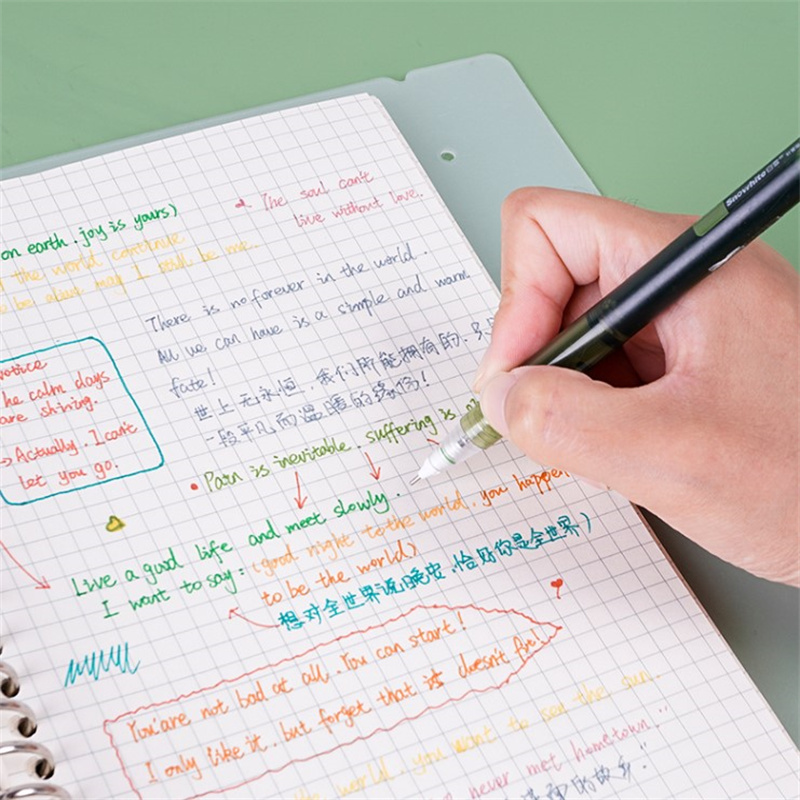 The soul can't
live without love.
on earth. joy is yours)
the world continue
be may I will be me.
There is no forever in the world.
All we can have is a simple and warm
fate!
世上无永恒,我们所能拥有的,只
一段平凡而温暖的缘份!
notice
he calm days
are shining.
→Actually. I can't
let you go.
Pain is inevitable. suffering is
Live a good life and meet slowly.
I want to say: (good night to the world. you happen
to be the world)
想对全世界说晚安,恰好你是全世界)
You are not bad at all. You can start!
I only like it. but forget that is doesn't fit!
world. you want to see the sun.
never met hometown."
的故乡"
Snowhite